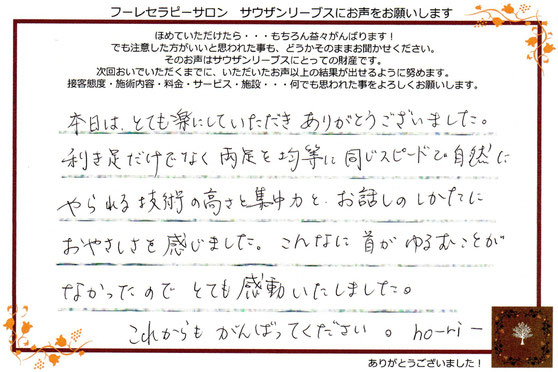 フーレセラピーサロン　サウザンリーブスにお声をお願いします
ほめていただけたら・・・もちろん益々がんばります！
でも注意した方がいいと思われた事も、どうかそのままお聞かせください。
そのお声はサウザンリーブスにとっての財産です。
次回おいでいただくまでに、いただいたお声以上の結果が出せるように努めます。
接客態度・施術内容・料金・サービス・施設・・・何でも思われた事をよろしくお願いします。
本日は、とても楽にしていただき ありがとうございました。
利き足だけでなく 両足を 均等に 同じスピードで 自然に
やられる技術の高さと集中力と、お話しのしかたに
おやさしさを感じました。こんなに 首が ゆるむことが
なかったので とても 感動いたしました。
これからも がんばってください。 ho-ri-
ありがとうございました！